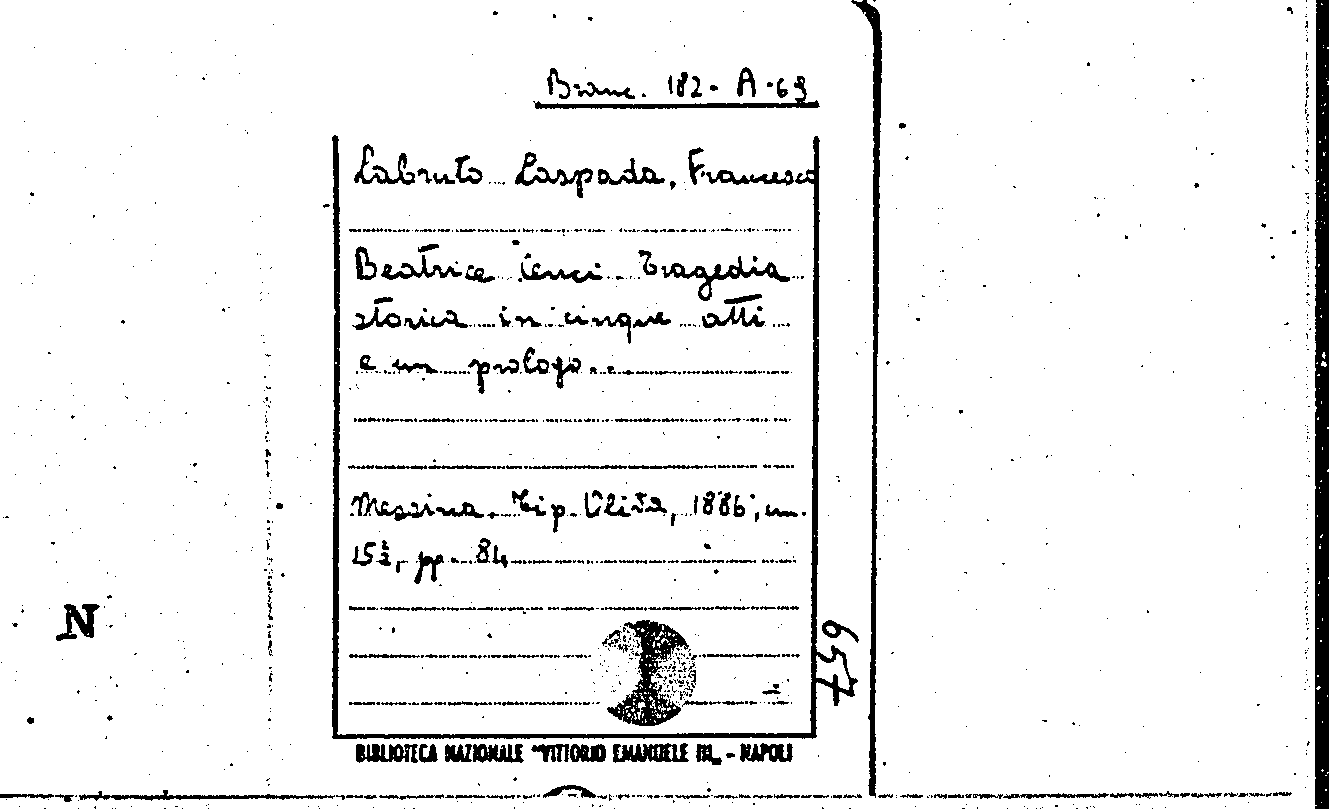 Branc. 182. A. 69
Labruto Laspada, Francesco
Beatrice Cenci. Tragedia
storica in cinque atti
e un prologo...
Messina. Tip. Oliva, 1886; cm.
15½, pp. 84
N
657
BIBLIOTECA NAZIONALE "VITTORIO EMANUELE III„ - NAPOLI